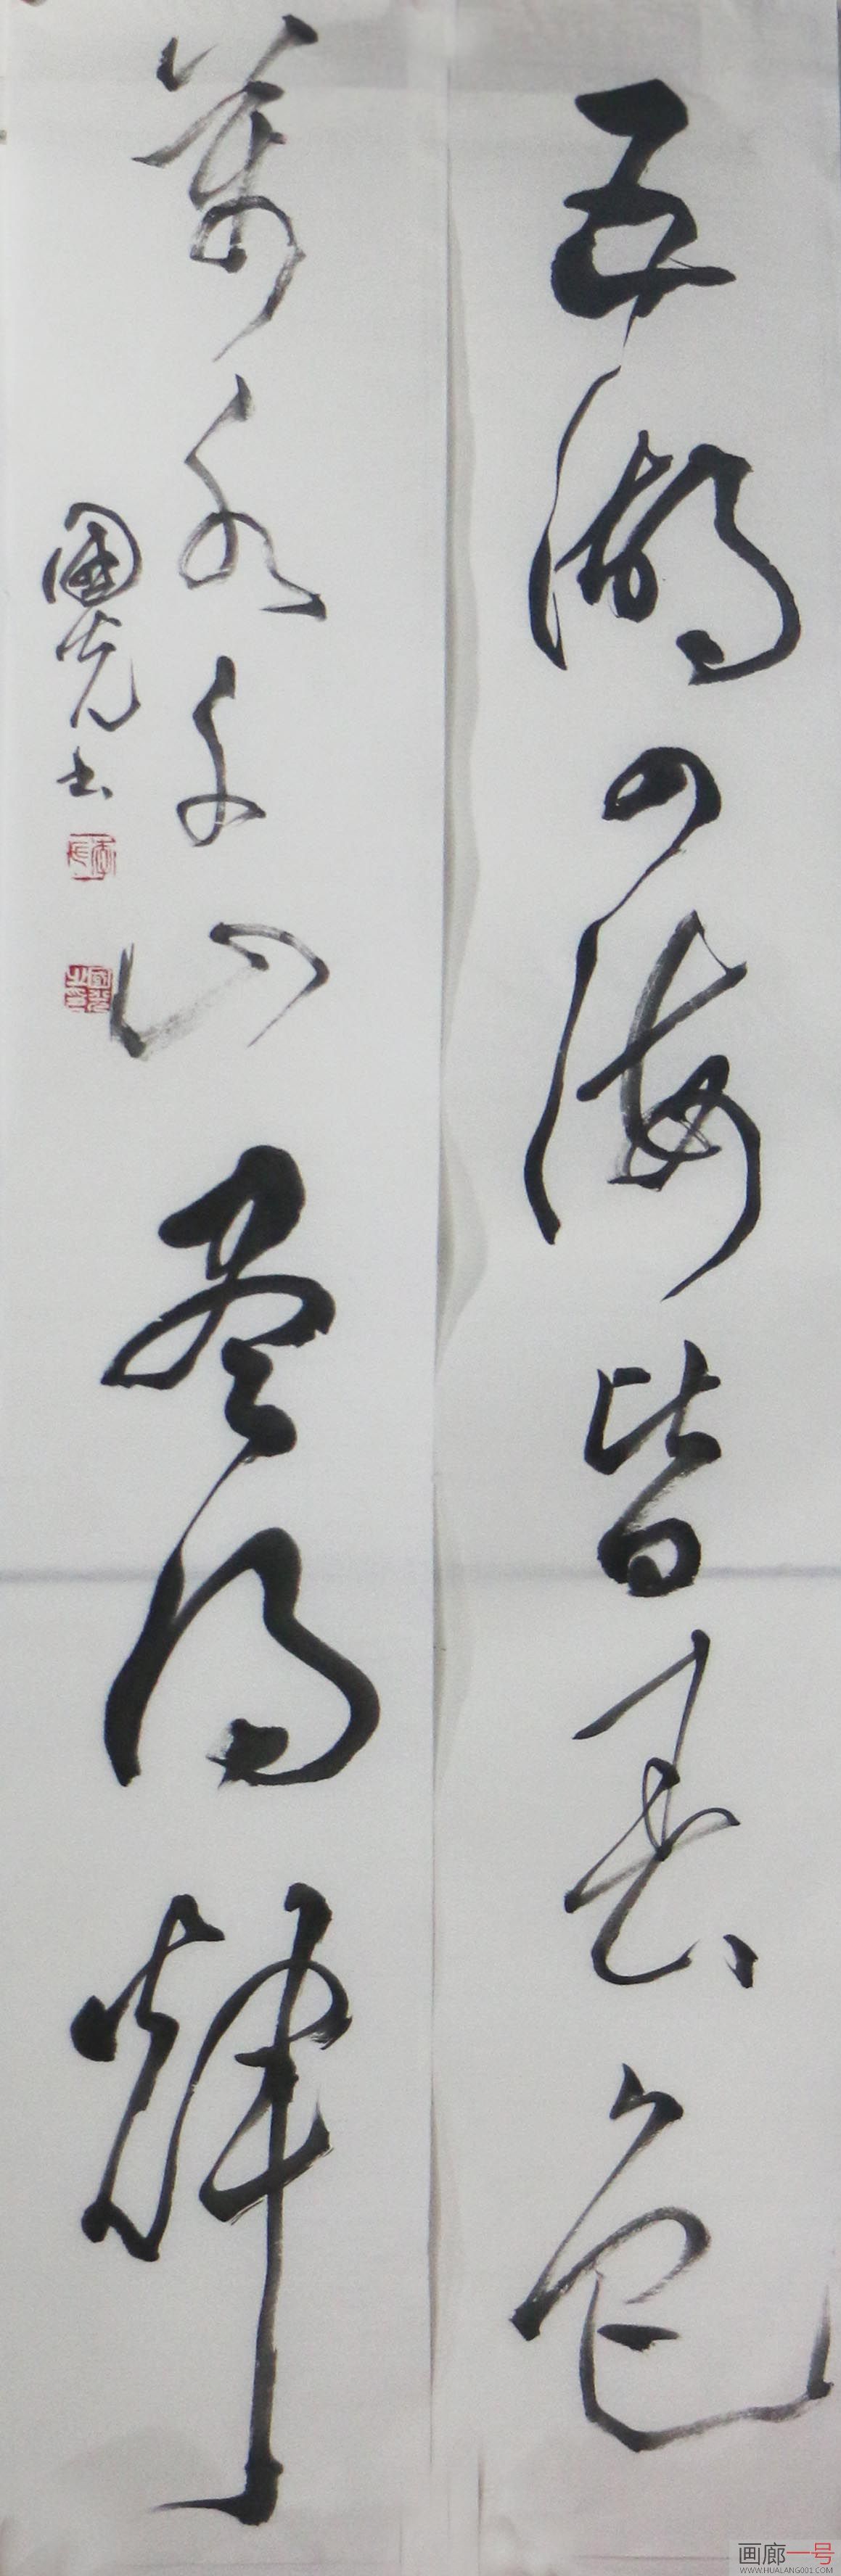 五湖四海皆春色
萬水千山盡得輝
國光书
画廊一号
WWW.HUALANG001.COM